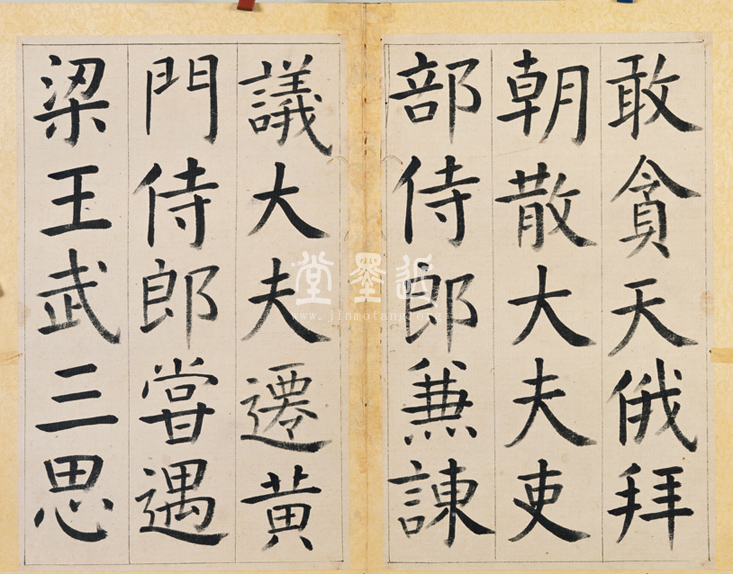 敢貪天俄拜
朝散大夫吏
部侍郎兼諫
議大夫遷黄
門侍郎嘗遇
梁王武三思
近墨堂
www.jinmotang.org